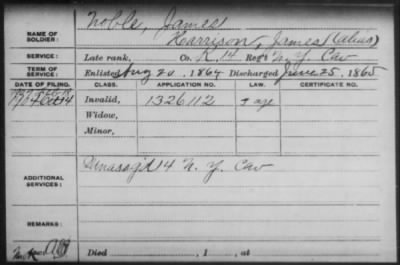 Noble, James
NAME OF SOLDIER: Harrison, James (alias)
SERVICE: Late rank, Co. K. 14 Reg't N.Y. Cav
TERM OF SERVICE: Enlisted Aug 20, 1864 Discharged June 25, 1865
DATE OF FILING. CLASS. APPLICATION NO. LAW. CERTIFICATE NO.
1904 Oct 4 Invalid, 1326112 age
Widow,
Minor,
ADDITIONAL SERVICES: Unassg'd 14 N. Y. Cav
REMARKS:
Died , 1 , at